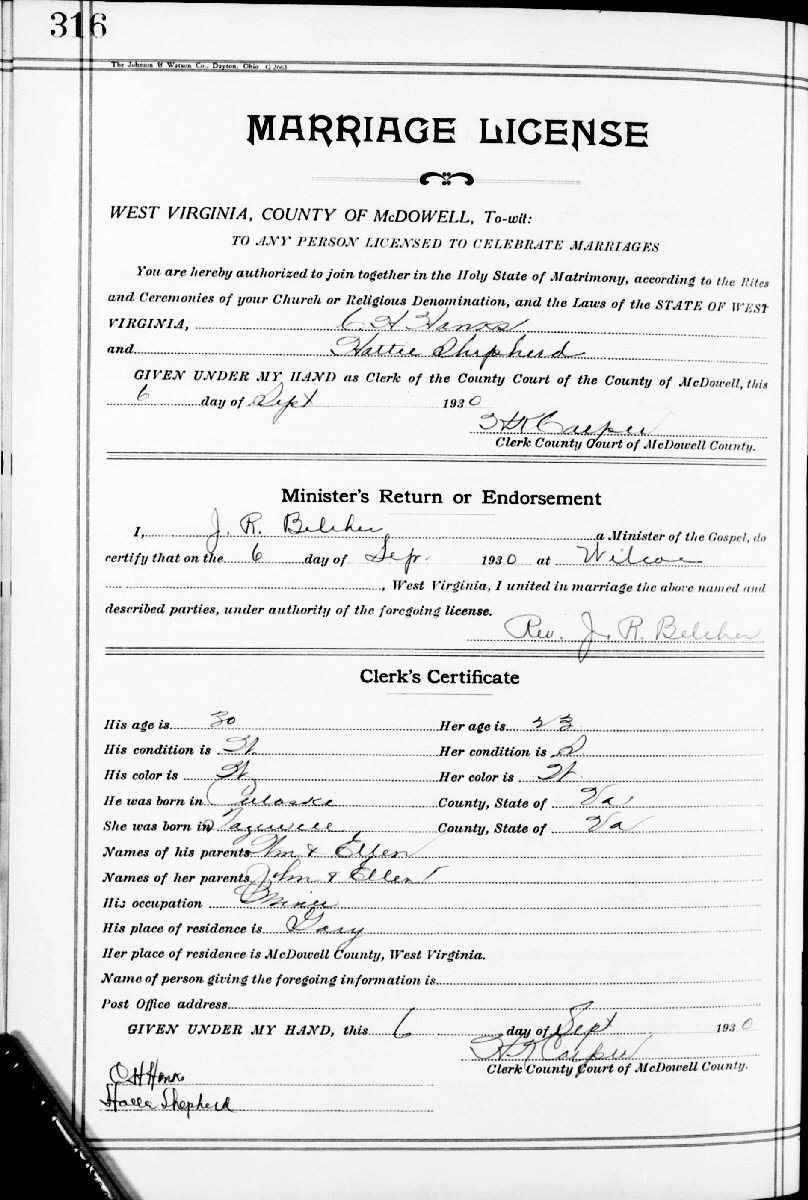 316
The Johnson & Watson Co., Dayton, Ohio G 2663
MARRIAGE LICENSE
WEST VIRGINIA, COUNTY OF McDOWELL, To-wit:
TO ANY PERSON LICENSED TO CELEBRATE MARRIAGES
You are hereby authorized to join together in the Holy State of Matrimony, according to the Rites
and Ceremonies of your Church or Religious Denomination, and the Laws of the STATE OF WEST
VIRGINIA, C H Hanks
and Hattie Shepherd
GIVEN UNDER MY HAND as Clerk of the County Court of the County of McDowell, this
6 day of Sept 1930
Clerk County Court of McDowell County.
Minister's Return or Endorsement
I, J. R. Belcher a Minister of the Gospel, do
certify that on the 6 day of Sep. 1930 at Wilcoe
, West Virginia, I united in marriage the above named and
described parties, under authority of the foregoing license.
Rev. J. R. Belcher
Clerk's Certificate
His age is 30 Her age is 23
His condition is Her condition is
His color is W Her color is W
He was born in Pulaski County, State of Va
She was born in Tazewell County, State of Va
Names of his parents Wm & Ellen
Names of her parents John & Ellen
His occupation Miner
His place of residence is Gary
Her place of residence is McDowell County, West Virginia.
Name of person giving the foregoing information is
Post Office address
GIVEN UNDER MY HAND, this 6 day of Sept 1930
Clerk County Court of McDowell County.
C H Hanks
Shepherd